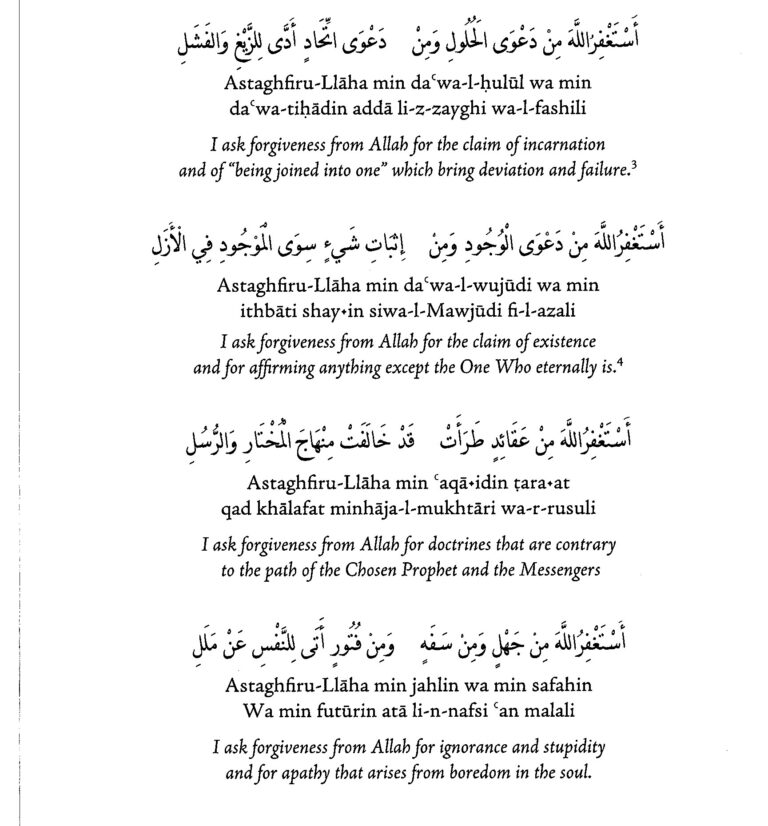 أَسْتَغْفِرُ اللَّهَ مِنْ دَعْوَى الْحُلُولِ وَمِنْ دَعْوَى اتِّحَادٍ أَدَّى لِلزَّيْغِ وَالفَشَلِ
Astaghfiru-Llāha min daʿwa-l-ḥulūl wa min
daʿwa-tiḥādin addā li-z-zayghi wa-l-fashili
I ask forgiveness from Allah for the claim of incarnation
and of “being joined into one” which bring deviation and failure.³
أَسْتَغْفِرُ اللَّهَ مِنْ دَعْوَى الْوُجُودِ وَمِنْ إِثْبَاتِ شَيءٍ سِوَى الْمَوْجُودِ فِي الْأَزَلِ
Astaghfiru-Llāha min daʿwa-l-wujūdi wa min
ithbāti shay•in siwa-l-Mawjūdi fi-l-azali
I ask forgiveness from Allah for the claim of existence
and for affirming anything except the One Who eternally is.⁴
أَسْتَغْفِرُ اللَّهَ مِنْ عَقَائِدٍ طَرَأَتْ قَدْ خَالَفَتْ مِنْهَاجَ الْمُخْتَارِ وَالرُّسُلِ
Astaghfiru-Llāha min ʿaqā•idin ṭara•at
qad khālafat minhāja-l-mukhtāri wa-r-rusuli
I ask forgiveness from Allah for doctrines that are contrary
to the path of the Chosen Prophet and the Messengers
أَسْتَغْفِرُ اللَّهَ مِنْ جَهْلٍ وَمِنْ سَفَهٍ وَمِنْ فُتُورٍ أَتَى لِلنَّفْسِ عَنْ مَلَلِ
Astaghfiru-Llāha min jahlin wa min safahin
Wa min futūrin atā li-n-nafsi ʿan malali
I ask forgiveness from Allah for ignorance and stupidity
and for apathy that arises from boredom in the soul.